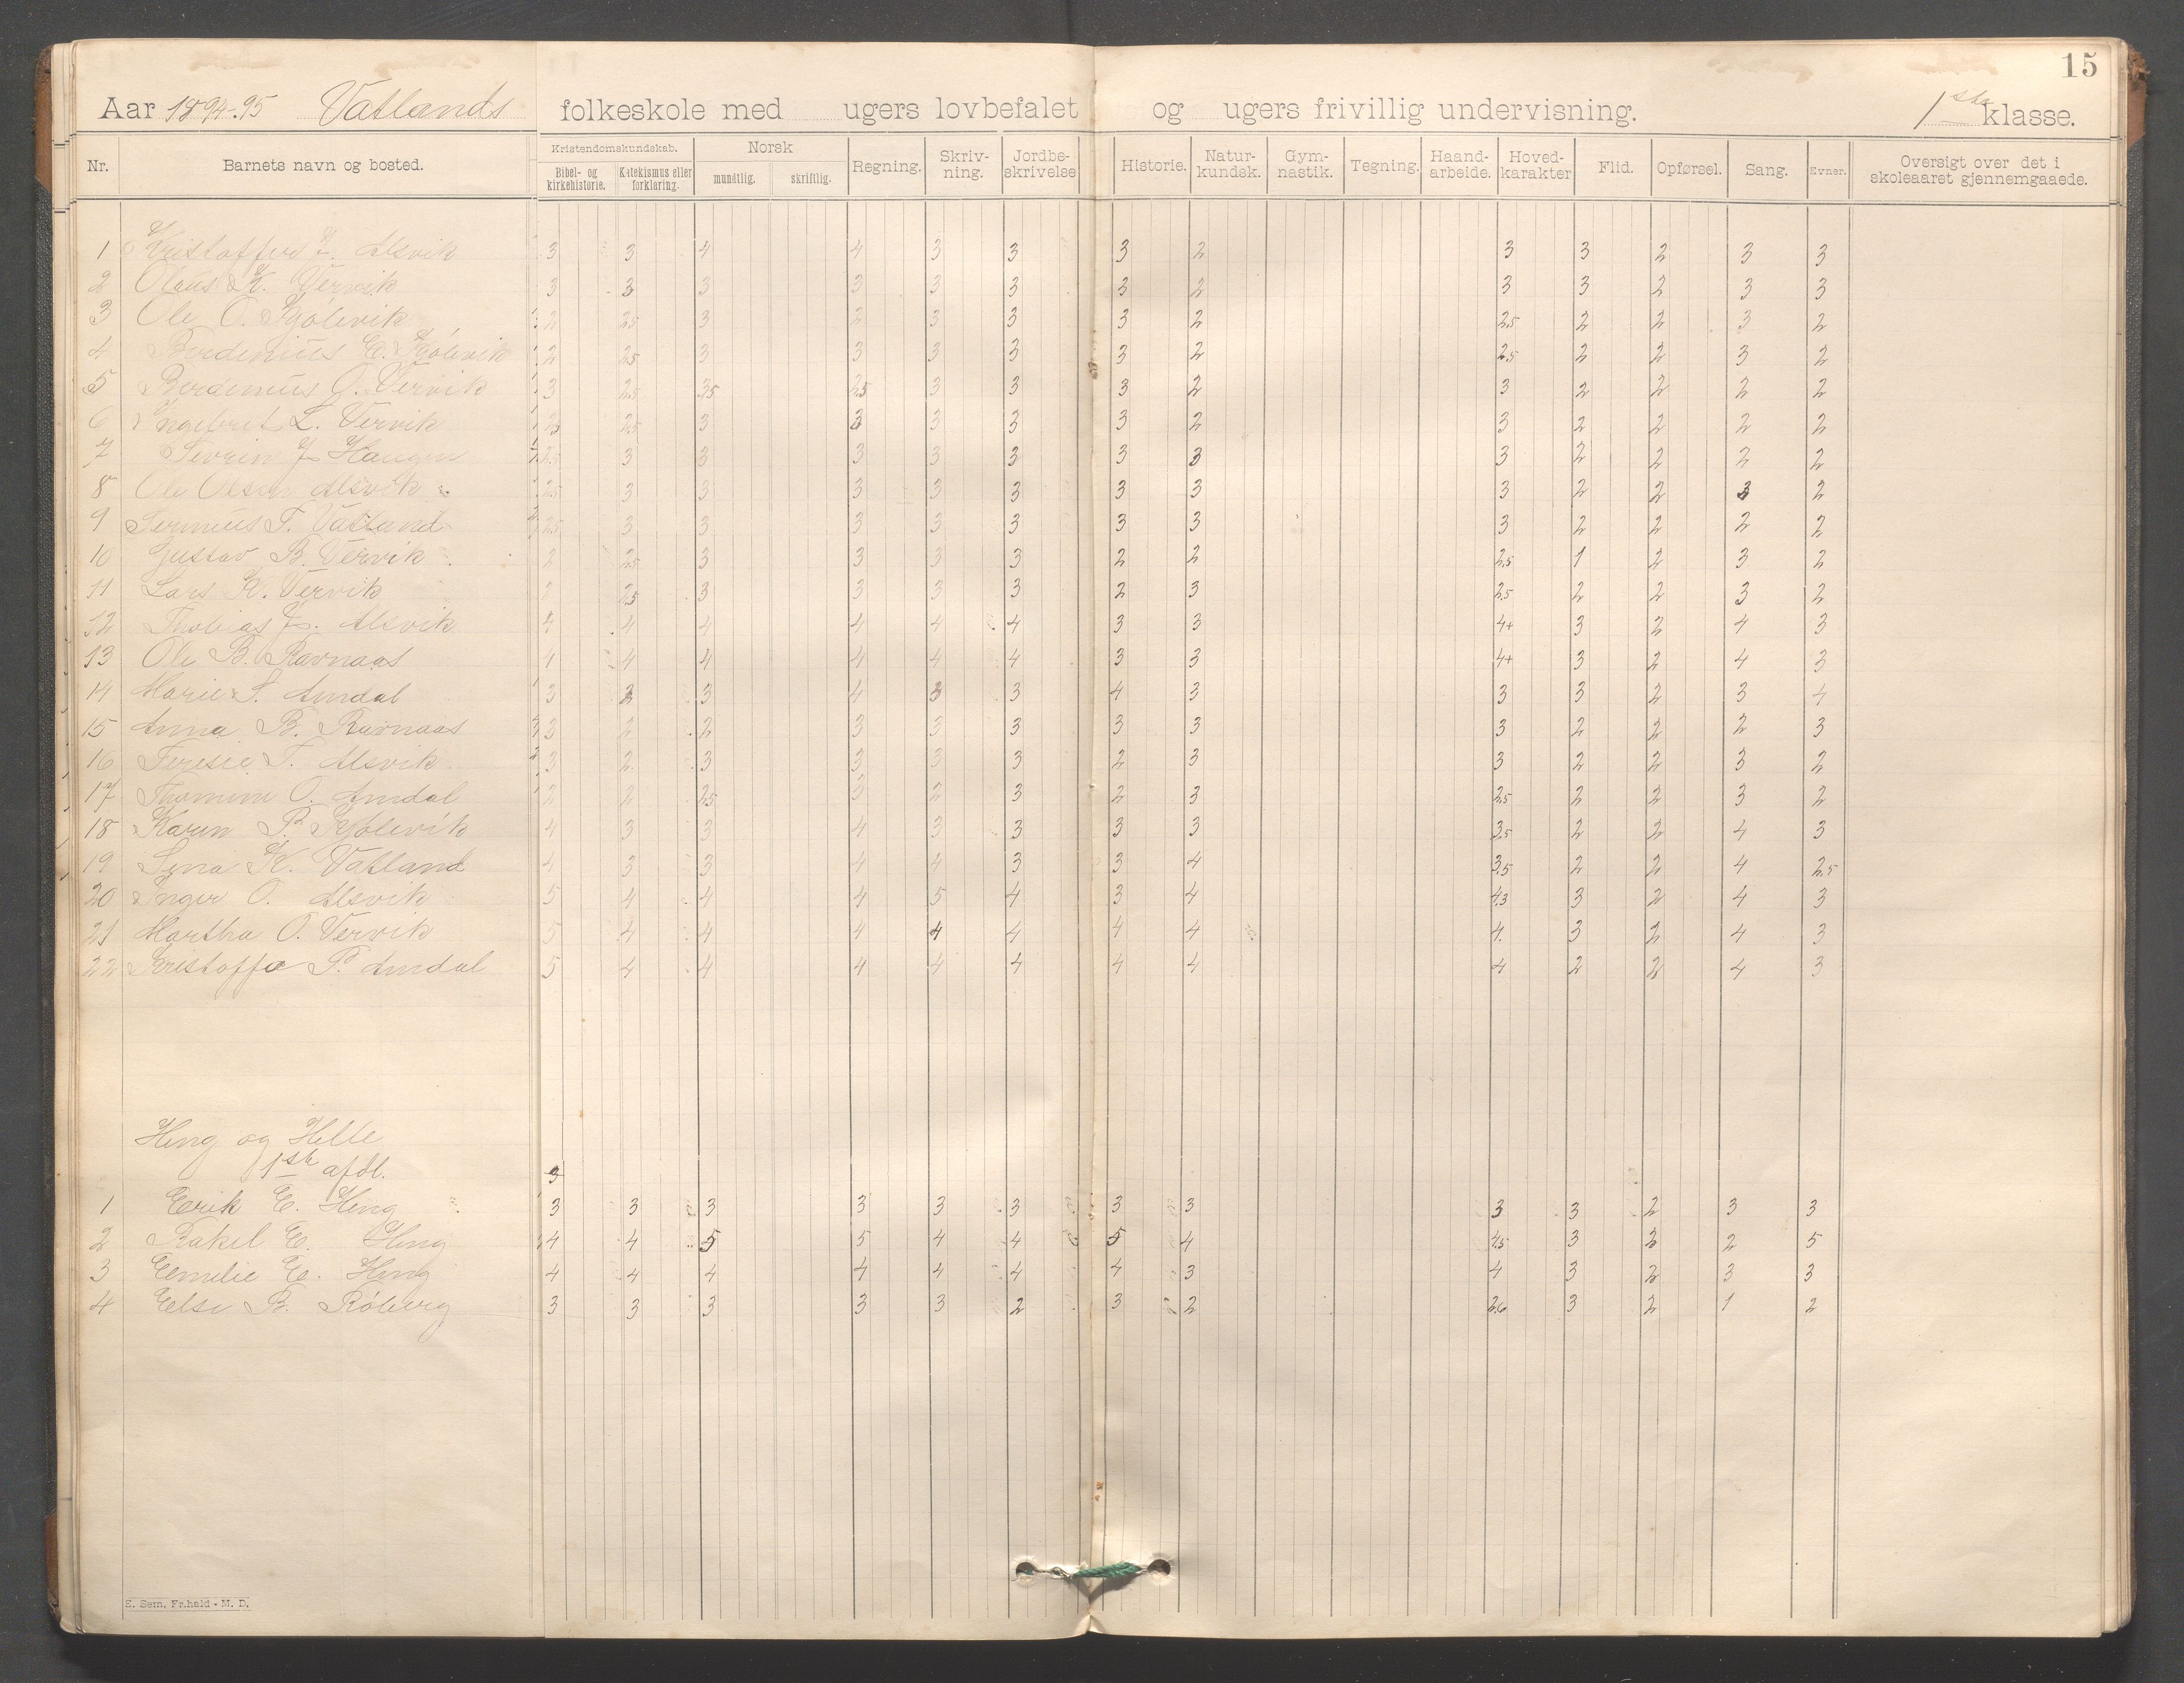 15
Aar 1894-95 Vatlands folkeskole med ugers lovbefalet og ugers frivillig undervisning. 1ste klasse.
Nr. Barnets navn og bosted. Kristendomskundskab. Bibel- og kirkehistorie. Katekismus eller forklaring. Norsk mundtlig. skriftlig. Regning. Skriv-ning. Jordbe-skrivelse Historie. Natur-kundsk. Gym-nastik. Tegning. Haand-arbeide. Hoved-karakter Flid. Opførsel. Sang. Evner. Oversigt over det i skoleaaret gjennemgaaede.
1 Kristoffer J. Alsvik 3 3 4 4 3 3 3 2 3 3 2 3 3
2 Olaus K. Vervik 3 3 3 3 3 3 3 2 3 3 2 3 3
3 Ole O. Kjølevik 2 2.5 3 2 3 3 3 2 2.5 2 2 3 2
4 Berdinius E. Kjølevik 2 2.5 3 3 3 3 3 2 2.5 2 2 3 2
5 Berdinius O. Vervik 3 2.5 3.5 2.5 3 3 3 2 3 2 2 2 2
6 Ingebret L. Vervik 2.5 3 3 3 3 3 2 3 2 2 2 2
7 Sevrin J. Haugen 2.5 3 3 3 3 3 3 3 3 2 2 2 2
8 Ole Olsen Alsvik 2.5 3 3 3 3 3 3 3 3 2 2 3 2
9 T. Vatland 2.5 3 3 3 3 3 3 3 3 2 2 2 2
10 Gustav B. Vervik 2 2.5 3 3 3 3 2 2 2.5 1 2 3 2
11 Lars K. Vervik 2 2.5 3 3 3 3 2 3 2.5 2 2 3 2
12 Thobias J. Alsvik 4 4 4 4 4 4 3 3 4+ 3 2 4 3
13 Ole B. Ravnaas 4 4 4 4 4 4 3 3 4+ 3 2 4 3
14 Marie S. Amdal 3 3 3 4 3 3 4 3 3 3 2 3 4
15 Anna B. Ravnaas 3 2 2 3 3 3 3 3 3 2 2 2 3
16 Teresie T. Alsvik 3 2 3 3 3 3 2 3 3 2 2 3 2
17 Thomine O. Amdal 2 2 2.5 3 2 3 2 3 2.5 2 2 3 2
18 Karen P. Kjølevik 4 3 3 4 3 3 3 3 3.5 2 2 4 3
19 Sina K. Vatland 4 3 3 4 4 3 3 4 3.5 2 2 4 2.5
20 Inger O. Alsvik 5 4 4 4 5 4 3 4 4.3 3 2 4 3
21 Martha O. Vervik 5 4 4 4 4 4 4 4 4. 3 2 4 3
22 Kristoffa P. Amdal 5 4 4 4 4 4 4 4 4 2 2 4 3
Heng og Helle
1ste afdl. 3
1 Eerik E. Heng 3 3 3 3 3 3 3 3 3 3 2 3 3
2 Rakel E. Heng 4 4 5 5 4 4 5 4 4.5 3 3 2 5
3 Eemilie E. Heng 4 4 4 4 4 4 4 3 4 3 2 3 3
4 Eelse B. Røberg 3 3 3 3 3 2 3 2 2.6 3 2 1 2
E. Sem, Fr.hald - M. D.